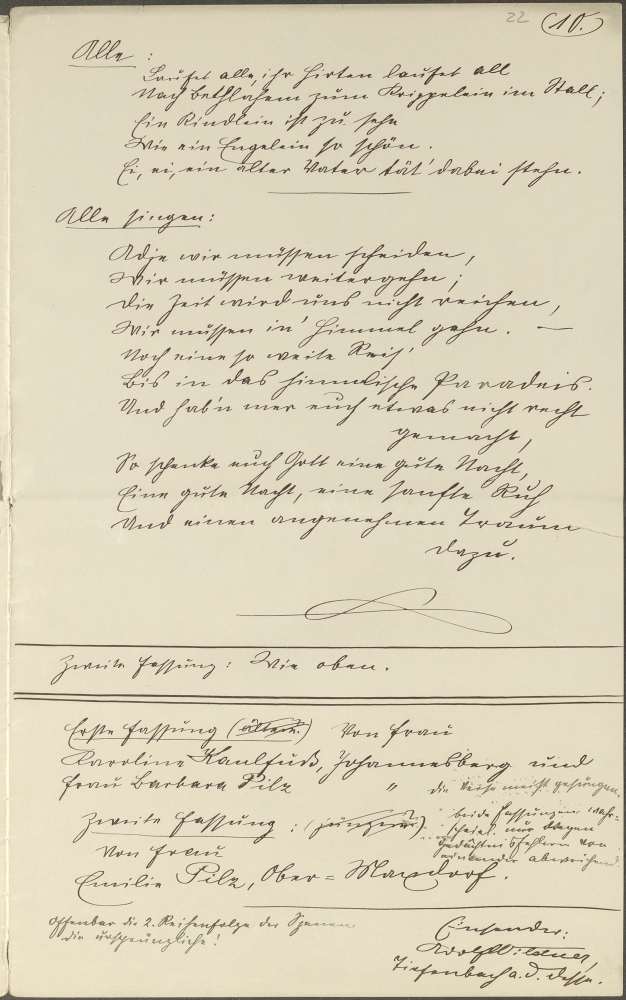 22 (10.)
Alle :
Laufet alle, ihr Hirten laufet all
Nach Bethlahem zum Krippelein im Stall;
Ein Kindlein ist zu sehn
Wie ein Engelein so schön.
Ei, ei, ein alter Vater tät' dabei stehn.
Alle singen:
Adje wir müssen scheiden,
Wir müssen weitergehn;
Die Zeit wird uns nicht reichen,
Wir müssen in' Himmel gehn. —
Noch eine so weite Reis'
Bis in das himmlische Paradeis.
Und hab'n mer euch etwas nicht recht
gemacht,
So schenke euch Gott eine gute Nacht,
Eine gute Nacht, eine sanfte Ruh
Und einen angenehmen Traum
dazu.
Zweite Fassung: Wie oben.
Erste Fassung (ältere.) Von Frau
Karoline Kaulfuß, Johannesberg und
Frau Barbara Pilz " die Verse meist gesungen.
Zweite Fassung: (jüngere) beide Fassungen
scheint nur wegen
Gedächtnisfehlern von
Von Frau einander abweichend.
Emilie Pilz, Ober-Maxdorf.
Offenbar die 2. Reihenfolge der Szenen
die ursprüngliche!
Einsender:
Adolf Wildner,
Tiefenbach a. d. Desse.